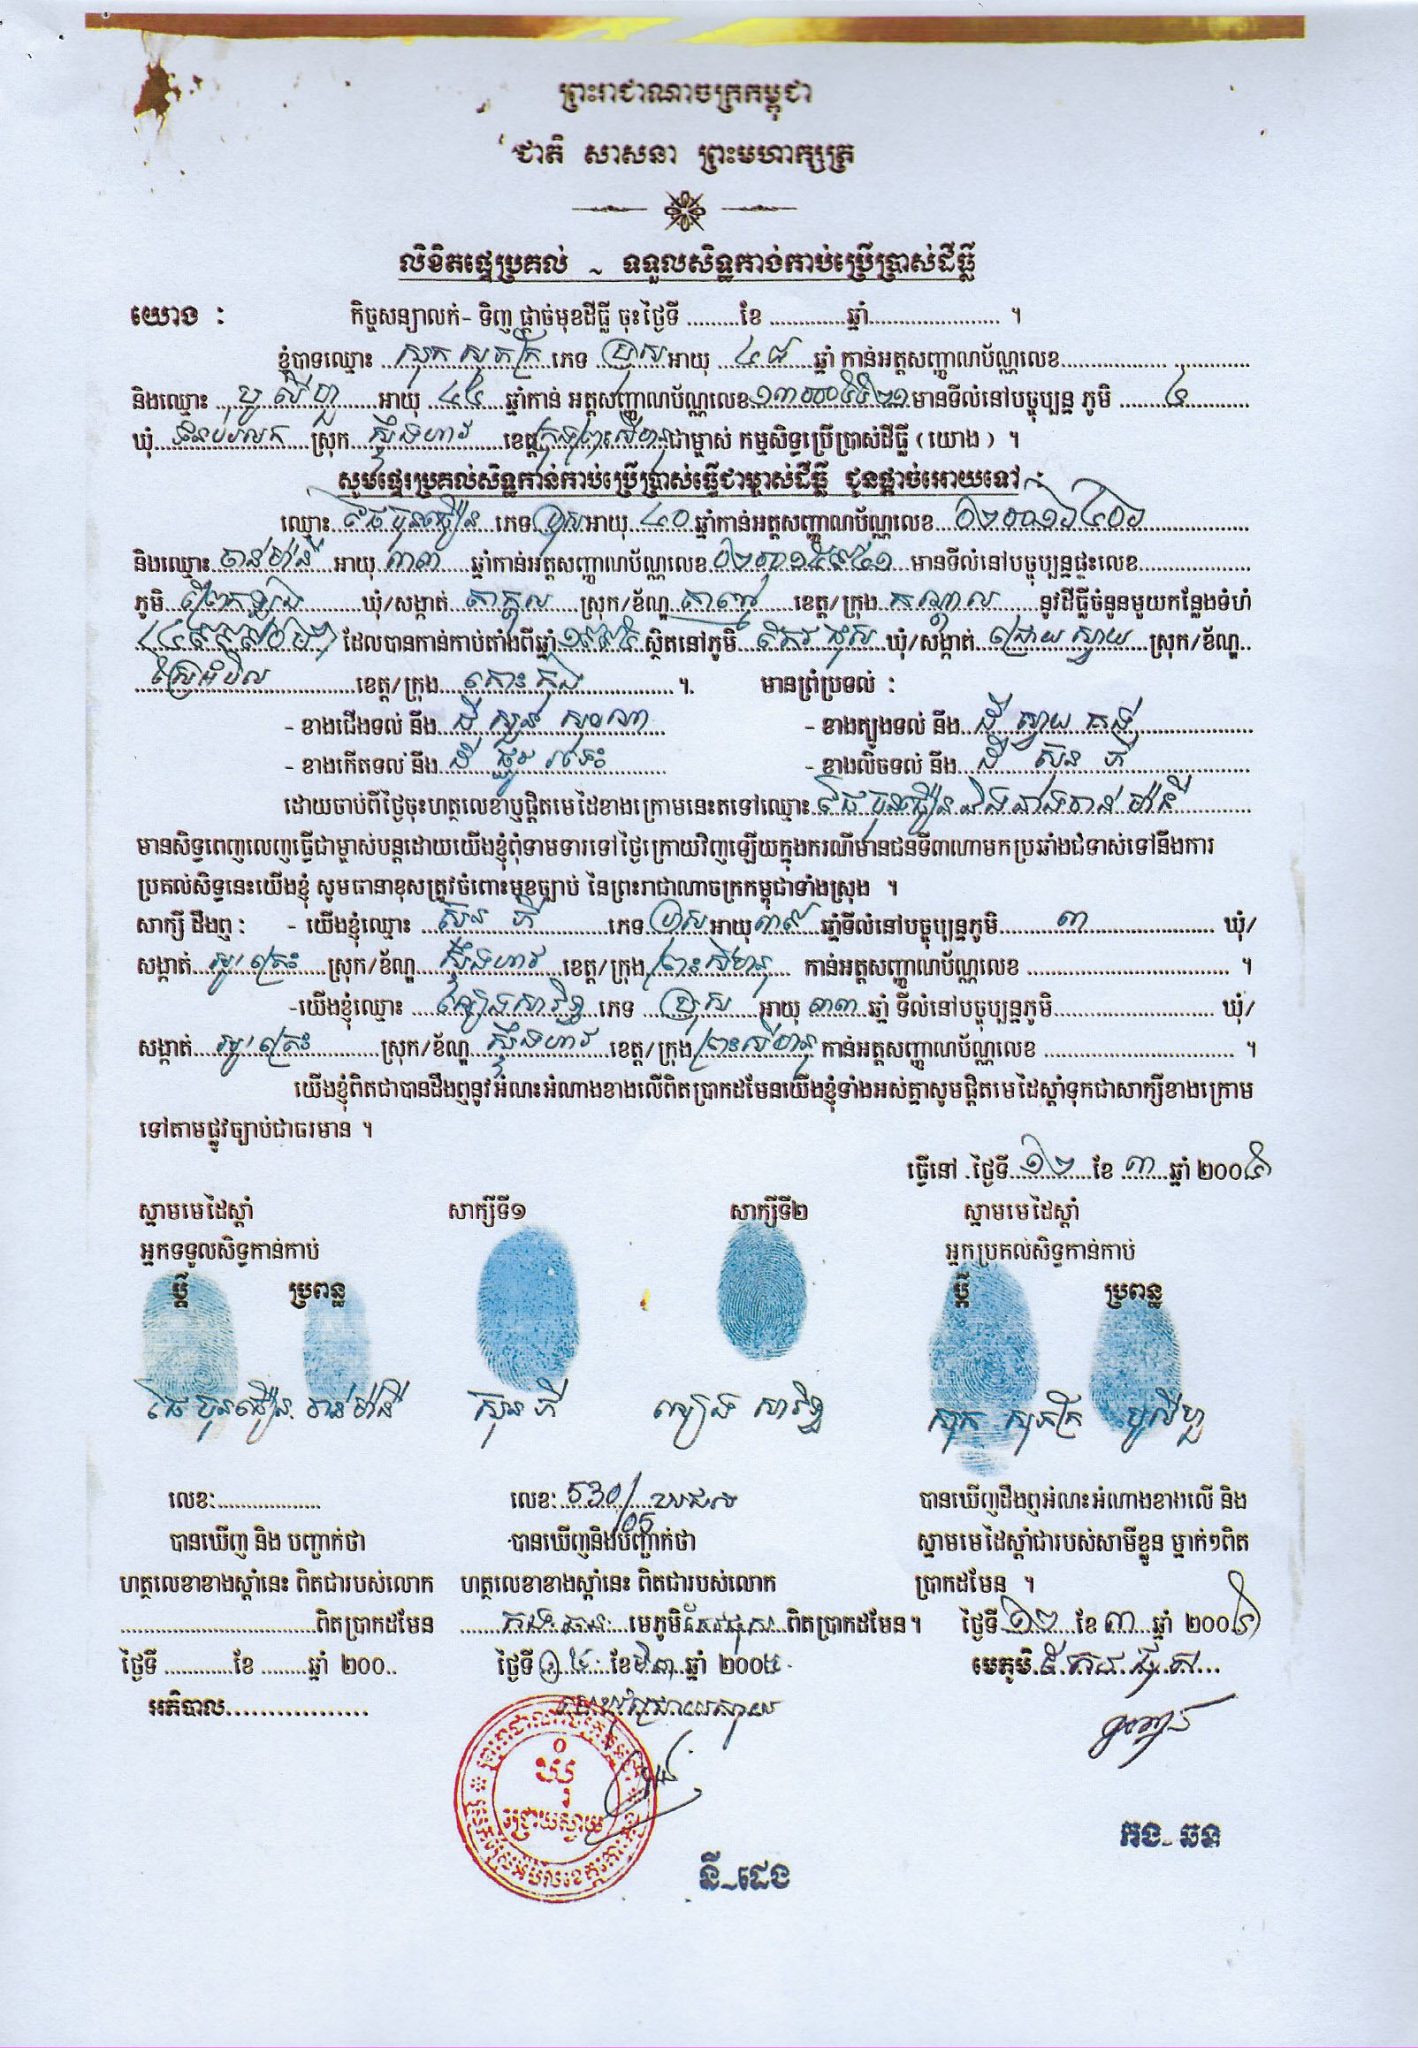 ព្រះរាជាណាចក្រកម្ពុជា
ជាតិ សាសនា ព្រះមហាក្សត្រ
លិខិតផ្ទេរប្រគល់ ~ ទទួលសិទ្ឋកាង់កាប់ប្រើប្រាស់ដីធ្លី
យោង : កិច្ចសន្យាលក់- ទិញ ផ្ដាច់មុខដីធ្លី ចុះថ្ងៃទី .........ខែ ..............ឆ្នាំ........................ ។
ខ្ញុំបាទឈ្មោះ សុក សុភក្រ័ ភេទ ប្រុស អាយុ ៤៨ ឆ្នាំ កាន់អត្តសញ្ញាណប័ណ្ណលេខ
និងឈ្មោះ អាយុ ៤៤ ឆ្នាំកាន់ អត្តសញ្ញាណប័ណ្ណលេខ មានទីលំនៅបច្ចុប្បន្ន ភូមិ ៤
ឃុំ ទំនប់រលក ស្រុក ស្ទឹងហាវ ខេត្ត ក្រុងព្រះសីហនុ ជាម្ចាស់ កម្មសិទ្ធប្រើប្រាស់ដីធ្លី ( យោង ) ។
សូមផ្ទេរប្រគល់សិទ្ឋកាន់កាប់ប្រើប្រាស់ធ្វើជាម្ចាស់ដីធ្លី ជូនផ្ដាច់អោយទៅ :
ឈ្មោះ ភេទ ប្រុស អាយុ ៤០ ឆ្នាំកាន់អត្តសញ្ញាណប័ណ្ណលេខ
និងឈ្មោះ ចាន់ម៉ានី អាយុ ៣៣ ឆ្នាំកាន់អត្តសញ្ញាណប័ណ្ណលេខ មានទីលំនៅបច្ចុប្បន្នផ្ទះលេខ
ភូមិ ឃុំ/សង្កាត់ តាក្ដុល ស្រុក/ខ័ណ្ឌ តាខ្មៅ ខេត្ត/ក្រុង កណ្ដាល នូវដីធ្លីចំនួនមួយកន្លែងទំហំ
ដែលបានកាន់កាប់តាំងពីឆ្នាំ ១៩៩៥ ស្ថិតនៅភូមិ ឃុំ/សង្កាត់ ជ្រោយស្វាយ ស្រុក/ខ័ណ្ឌ
ស្រែអំបិល ខេត្ត/ក្រុង កោះកុង ។ មានព្រំប្រទល់ :
- ខាងជើងទល់ នឹង ដី សួន សុវណា - ខាងត្បូងទល់ នឹង ដី ស្វាយ គន្ធី
- ខាងកើតទល់ នឹង ដី ផ្លូវ រទេះ - ខាងលិចទល់ នឹង ដី ស៊ុន ភី
ដោយចាប់ពីថ្ងៃចុះហត្ថលេខាឬផ្ដិតមេដៃខាងក្រោមនេះតទៅឈ្មោះ
មានសិទ្ធពេញលេញធ្វើជាម្ចាស់បន្តដោយយើងខ្ញុំពុំទាមទារទៅថ្ងៃក្រោយវិញឡើយក្នុងករណីមានជនទី៣ណាមកប្រឆាំងជំទាស់ទៅនឹងការ
ប្រគល់សិទ្ធនេះយើងខ្ញុំ សូមធានាខុសត្រូវចំពោះមុខច្បាប់ នៃព្រះរាជាណាចក្រកម្ពុជាទាំងស្រុង ។
សាក្សី ដឹងឮ : - យើងខ្ញុំឈ្មោះ ស៊ុន ភី ភេទ ប្រុស អាយុ ៣៩ ឆ្នាំទីលំនៅបច្ចុប្បន្នភូមិ ៣ ឃុំ/
សង្កាត់ អូរត្រេះ ស្រុក/ខ័ណ្ឌ ស្ទឹងហាវ ខេត្ត/ក្រុង ព្រះសីហនុ កាន់អត្តសញ្ញាណប័ណ្ណលេខ ។
-យើងខ្ញុំឈ្មោះ ភេទ ប្រុស អាយុ ៣៣ ឆ្នាំ ទីលំនៅបច្ចុប្បន្នភូមិ ឃុំ/
សង្កាត់ អូរត្រេះ ស្រុក/ខ័ណ្ឌ ស្ទឹងហាវ ខេត្ត/ក្រុង ព្រះសីហនុ កាន់អត្តសញ្ញាណប័ណ្ណលេខ ។
យើងខ្ញុំពិតជាបានដឹងឮនូវអំណះអំណាងខាងលើពិតប្រាកដមែនយើងខ្ញុំទាំងអស់គ្នាសូមផ្ដិតមេដៃស្ដាំទុកជាសាក្សីខាងក្រោម
ទៅតាមផ្លូវច្បាប់ជាធរមាន ។
ធ្វើនៅ ថ្ងៃទី ១២ ខែ ៣ ឆ្នាំ ២០០៥
ស្នាមមេដៃស្ដាំ សាក្សីទី១ សាក្សីទី២ ស្នាមមេដៃស្ដាំ
អ្នកទទួលសិទ្ធកាន់កាប់ អ្នកប្រគល់សិទ្ធកាន់កាប់
ប្ដី ប្រពន្ធ ប្ដី ប្រពន្ធ
ចាន់ម៉ានី ស៊ុន ភី សុក សុភក្រ័
លេខ: លេខ: 530/ 05 បានឃើញដឹងឮអំណះអំណាងខាងលើ និង
បានឃើញ និង បញ្ជាក់ថា បានឃើញនិងបញ្ជាក់ថា ស្នាមមេដៃស្ដាំជារបស់សាមីខ្លួន ម្នាក់ៗពិត
ហត្ថលេខាខាងស្ដាំនេះ ពិតជារបស់លោក ហត្ថលេខាខាងស្ដាំនេះ ពិតជារបស់លោក ប្រាកដមែន ។
ពិតប្រាកដមែន មេភូមិ ពិតប្រាកដមែន។ ថ្ងៃទី ១២ ខែ ៣ ឆ្នាំ ២០០៥
ថ្ងៃទី ............ខែ .........ឆ្នាំ ២០០.. ថ្ងៃទី ១៤ ខែ ៣ ឆ្នាំ ២០០៥ មេភូមិ
អភិបាល................. មេឃុំជ្រោយស្វាយ
ឃុំ
ជ្រោយស្វាយ
នី-ដេង
កង- ឆន